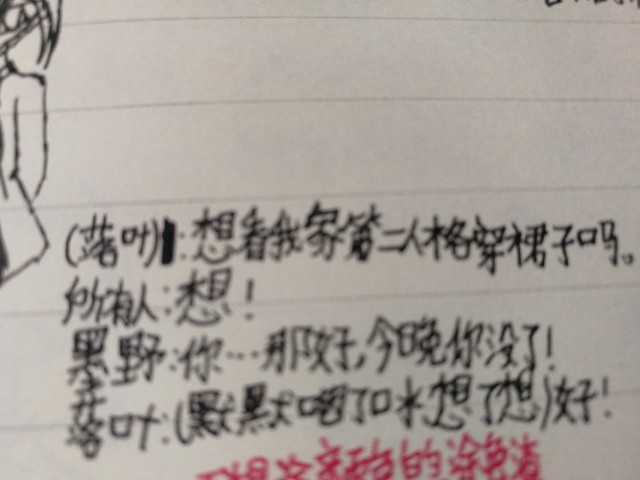 (落叶):想看我家第二人格穿裙子吗。
所有人:想!
黑野:你…那好,今晚你没了!
落叶:(默默咽了口水想了想)好!